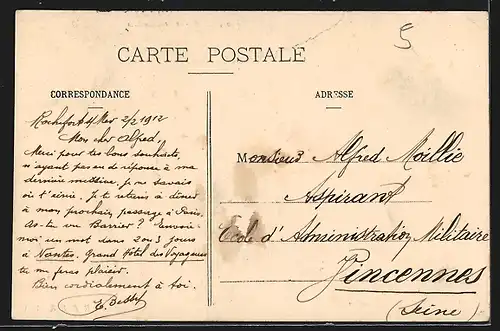 5
CARTE POSTALE
CORRESPONDANCE
Rochefort s/Mer 2/2 1912
Mon cher Alfred,
Merci pour tes bons souhaits,
n'ayant pas eu de réponse à ma
dernière missive, je ne savais
où t'écrire. Je te retiens à dîner
à mon prochain passage à Paris.
As-tu vu Barrier? Envoie-
moi un mot dans 2 ou 3 jours
à Nantes. Grand Hôtel des Voyageurs
tu me feras plaisir.
Bien cordialement à toi.
ADRESSE
Monsieur Alfred Moillie
Aspirant
Ecole d'Administration Militaire
Vincennes
(Seine)